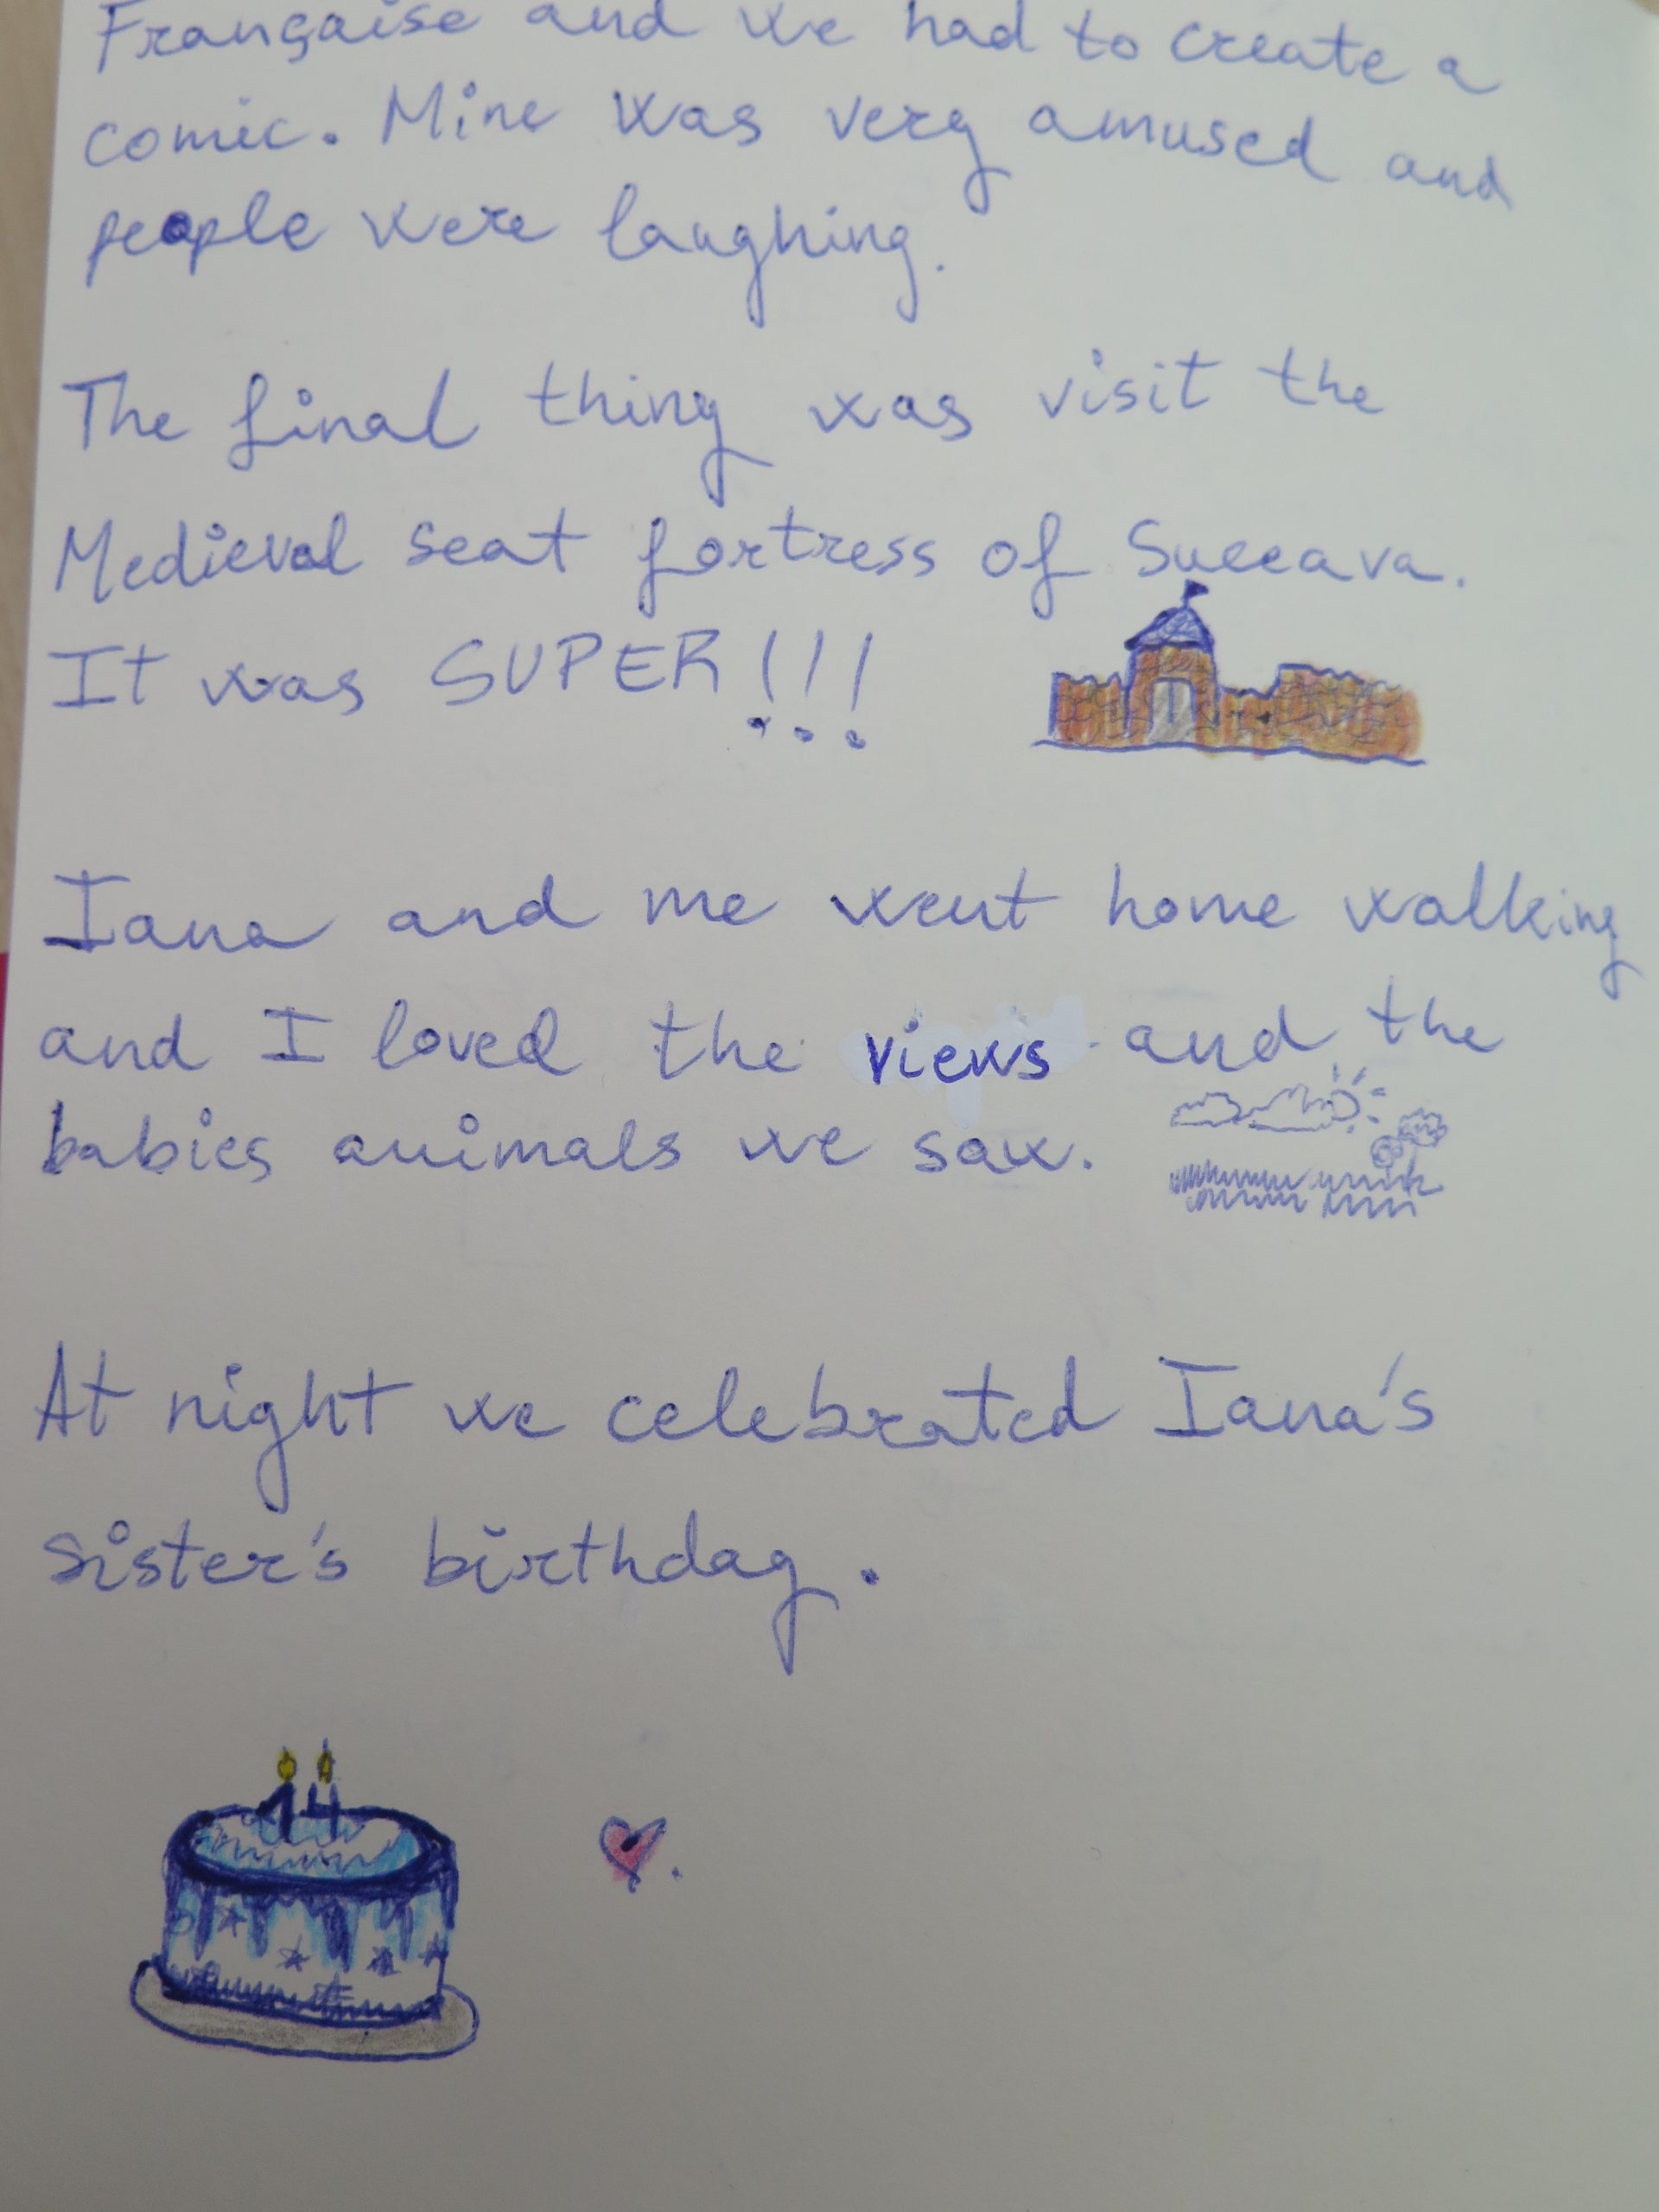 Française and we had to create a
comic. Mine was very amused and
people were laughing.
The final thing was visit the
Medieval seat fortress of Suceava.
It was SUPER!!!
Iana and me went home walking
and I loved the views and the
babies animals we saw.
At night we celebrated Iana's
sister's birthday.
14